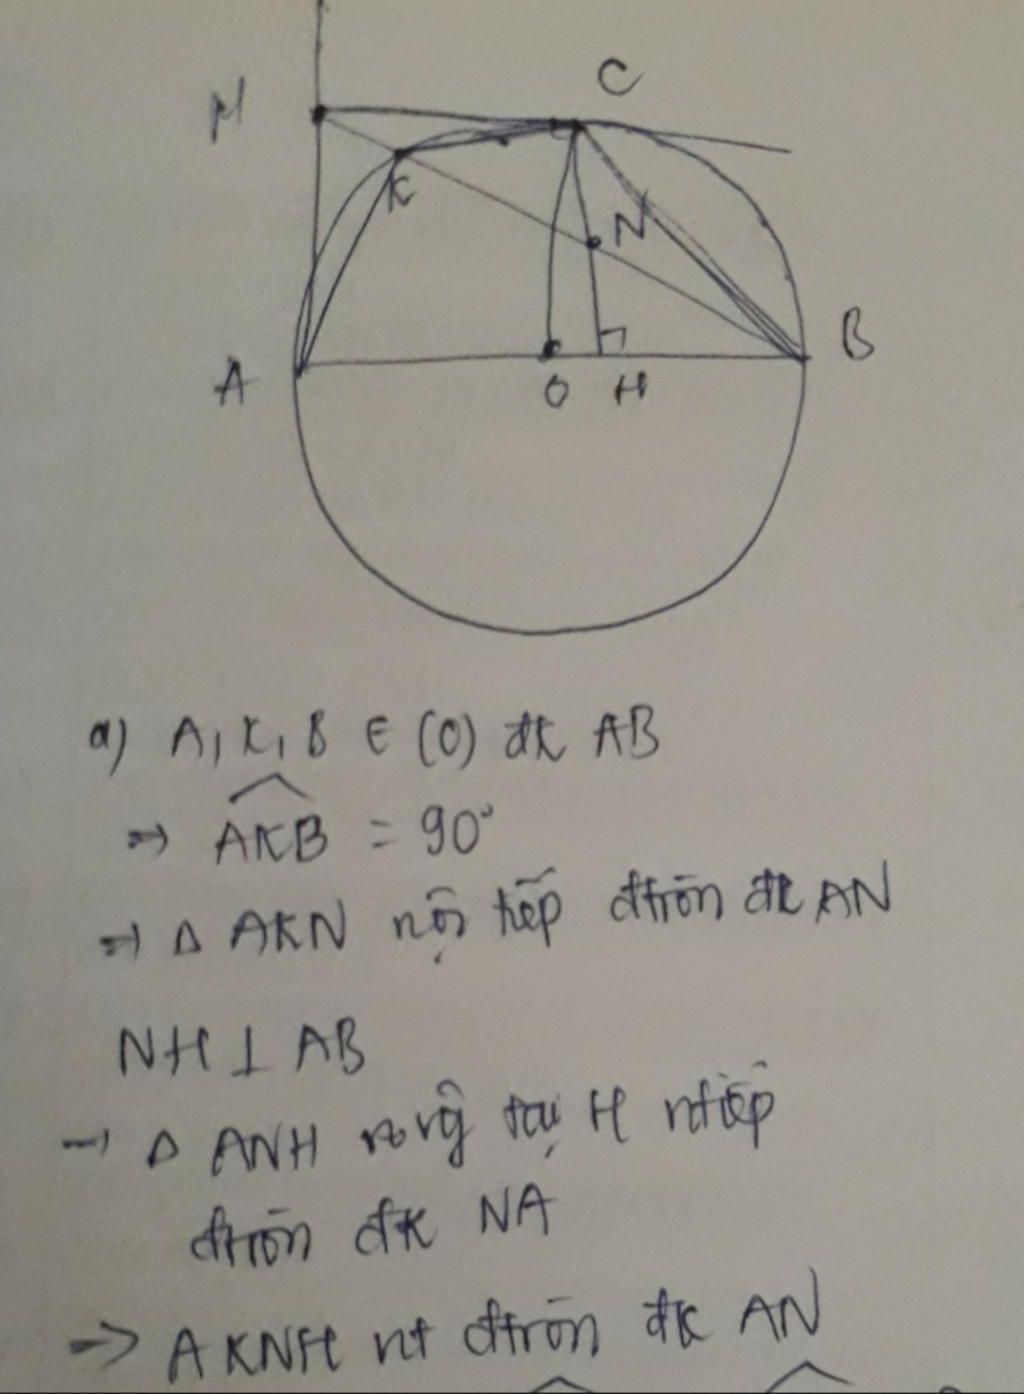 M
C
K
N
A
O
H
B
a) A, K, B ∈ (O) đk AB
=> AKB = 90°
=> Δ AKN nội tiếp đtròn đk AN
NH ⊥ AB
→ Δ ANH vg tại H ntiếp
đtròn đk NA
=> AKNH nt đtròn đk AN